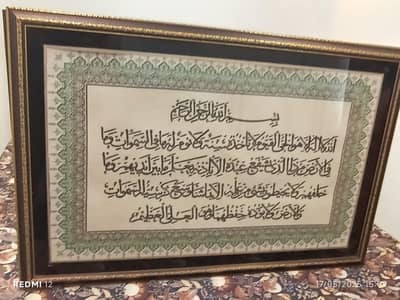 بسم الله الرحمن الرحيم
الله لا إله إلا هو الحي القيوم لا تأخذه سنة ولا نوم له ما في السموات وما
في الأرض من ذا الذي يشفع عنده إلا بإذنه يعلم ما بين أيديهم وما
خلفهم ولا يحيطون بشيء من علمه إلا بما شاء وسع كرسيه السموات
والأرض ولا يؤده حفظهما وهو العلي العظيم
REDMI 12